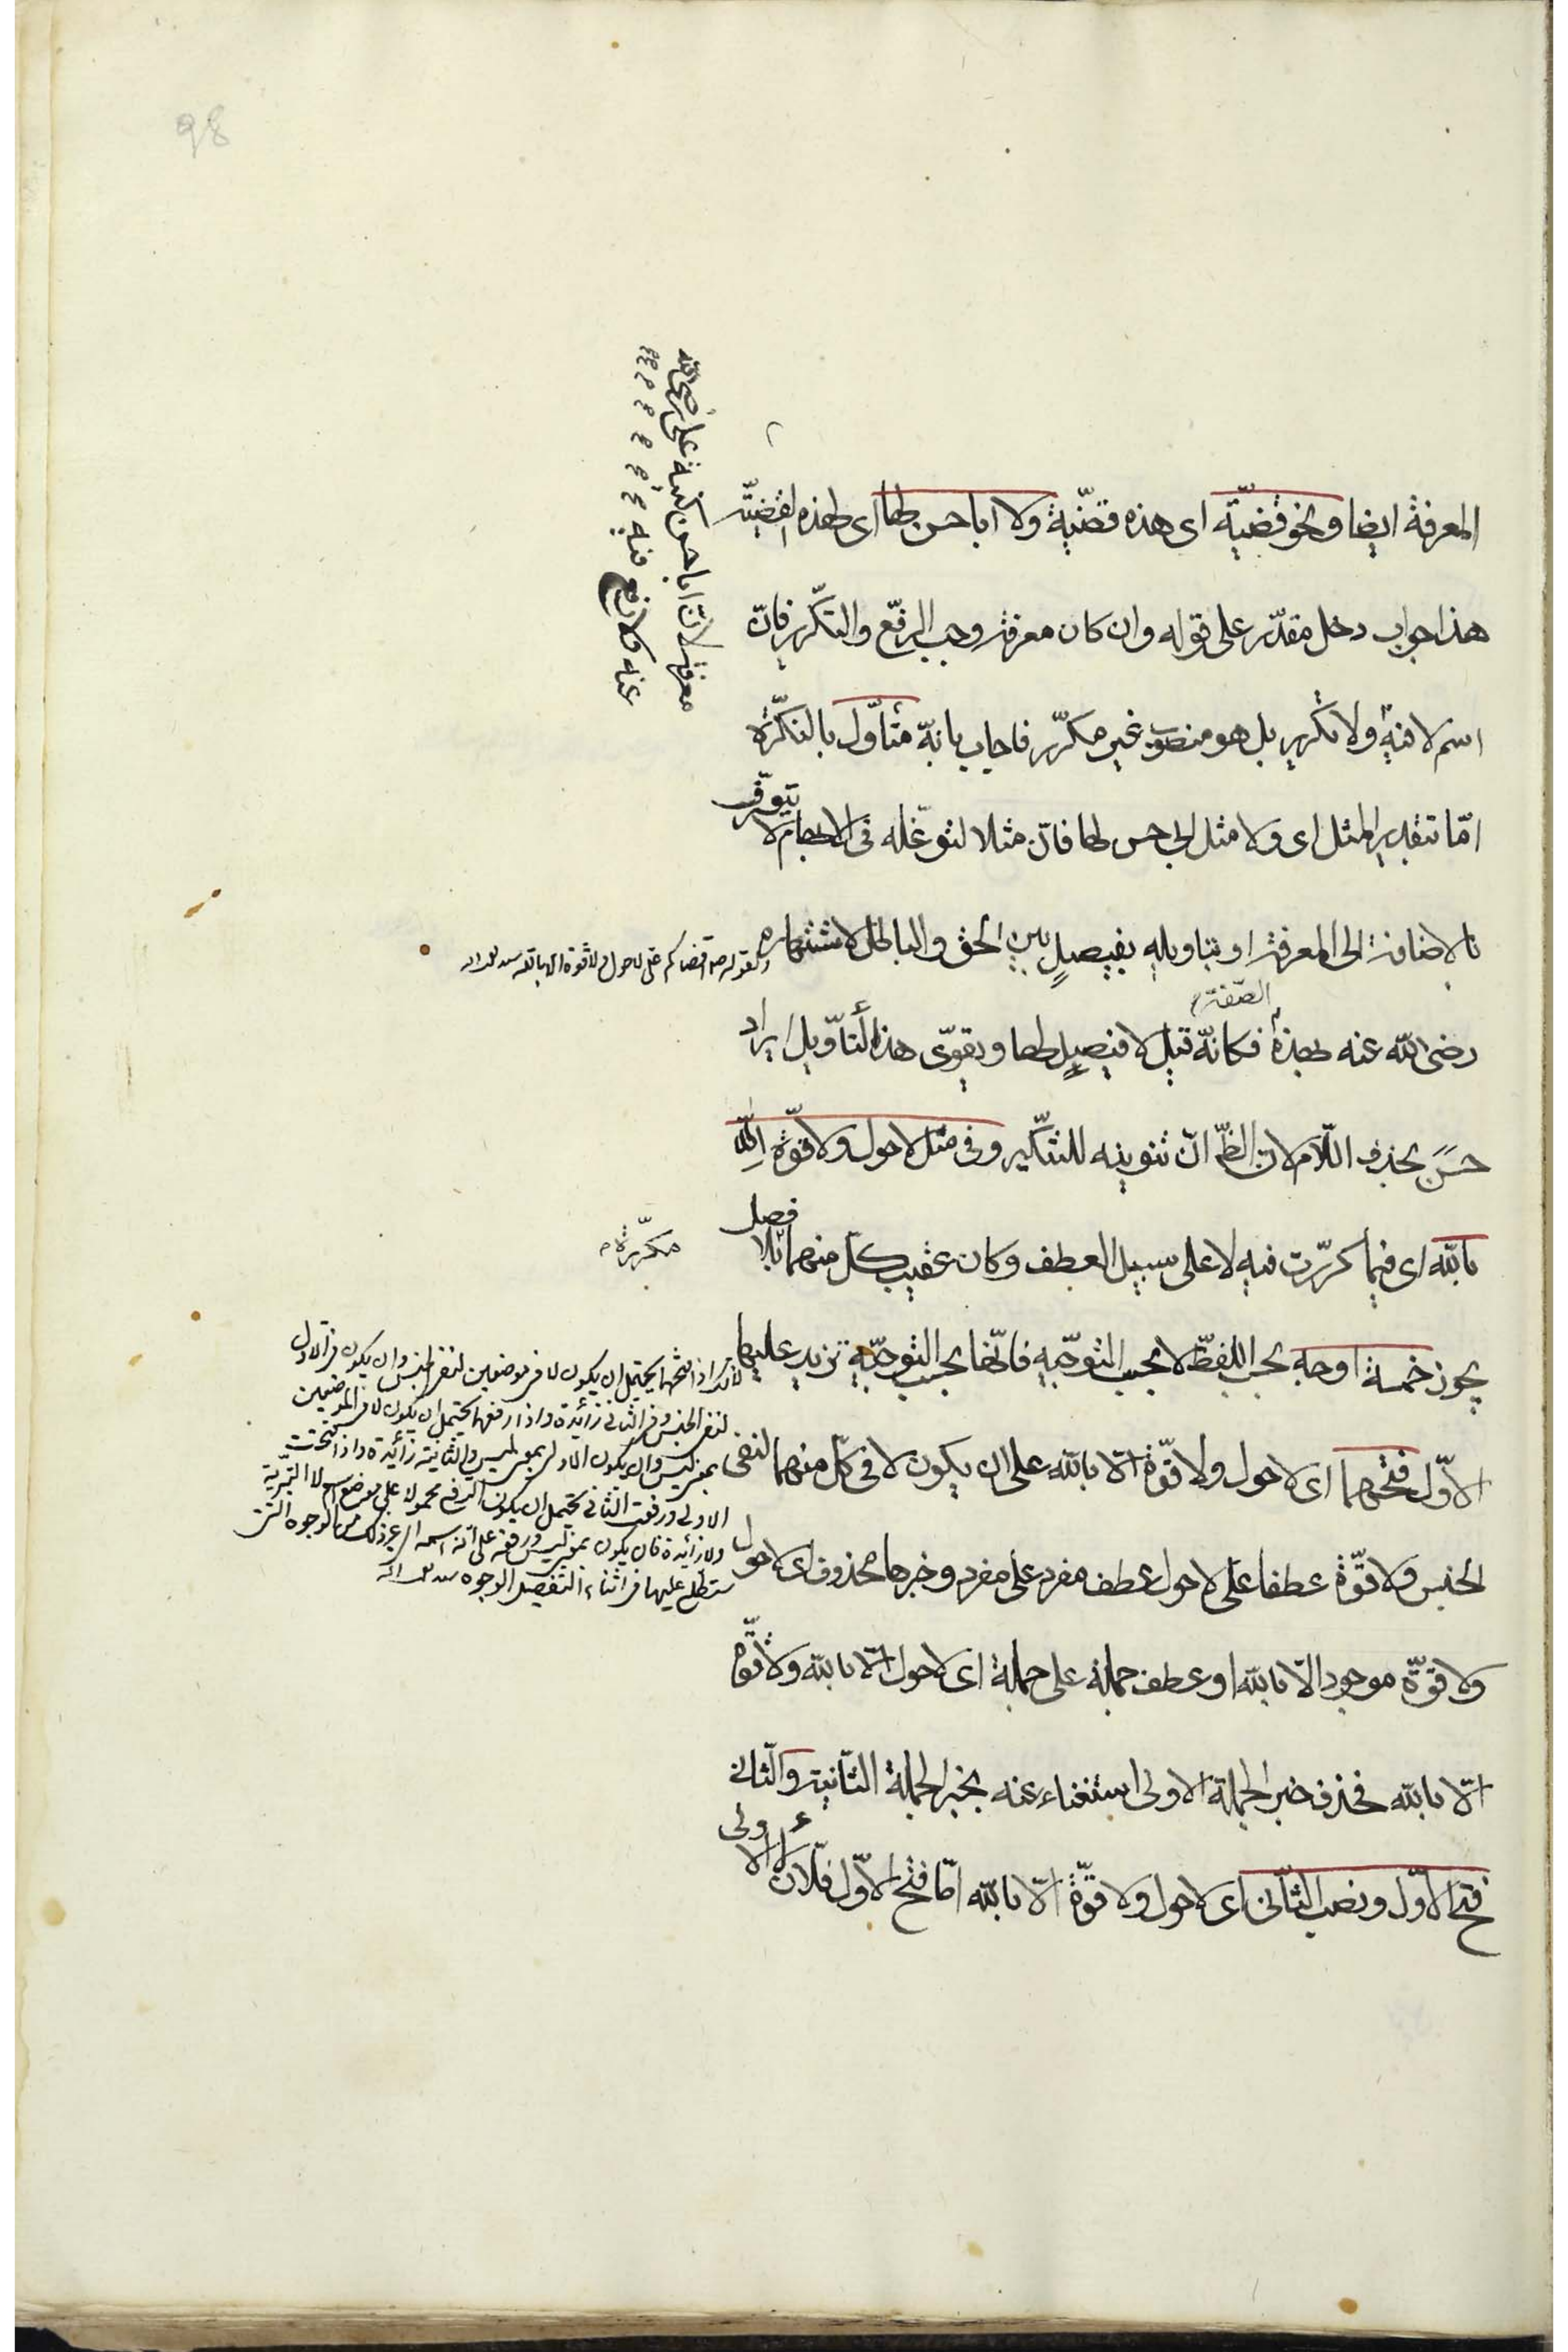 98
المعرفة ايضا ونحو قضيّة اى هذه قضيّة ولا ابا حسن لها اى لهذه القضيّة
هذا جواب دخل مقدّر على قوله وان كان معرفة وجب الرفع والتكرير فانّ
اسم لا فيه ولا تكرير بل هو منصوب غير مكرّر فاجاب بانّه متأوّل بالنكرة
امّا بتقدير المثل اى ولا مثل ابى حسن لها فانّ مثلا لتوغّله فى الابهام لا يتعرّف
بالاضافة الى المعرفة او بتاويله بفيصل بين الحق والباطل لاشتهاره
رضى الله عنه بهذه الصّفة فكانّه قيل لا فيصل لها ويقوّى هذا التأويل ايراد
حسن بحذف اللّام لانّ الظ انّ تنوينه للتنكير وفى مثل لا حول ولا قوّة الّا
بالله اى فيما كرّرت فيه لا على سبيل العطف وكان عقيب كلّ منهما بلا فصل
مكرّرة
يجوز خمسة اوجه بحسب اللفظ لا بحسب التوجيه فانّها بحسب التوجيه تزيد عليها
الاوّل فتحهما اى لا حول ولا قوّة الّا بالله على ان يكون لا فى كلّ منهما لنفى
الجنس ولا قوّة عطفا على لا حول عطف مفرد على مفرد وخبرها محذوف اى لا حول
ولا قوّة موجود الّا بالله او عطف جملة على جملة اى لا حول الّا بالله ولا قوّة
الّا بالله فحذف خبر الجملة الاولى استغناء عنه بخبر الجملة الثّانية والثّانى
فتح الاوّل ونصب الثّانى اى لا حول ولا قوّة الّا بالله امّا فتح الاوّل فلانّ لا الاولى
لانّ ابا حسن كنية على رضى الله
عنه ولا رفع فيه
لانّك اذا فتحتهما يحتمل ان يكون لا فى موضعين لنفى الجنس وان يكون فى الاول
لنفى الجنس وفى الثانى زائدة واذا رفعتهما يحتمل ان يكون لا فى الموضعين
بمعنى ليس وان يكون الاولى بمعنى ليس والثانية زائدة واذا فتحت
الاولى ورفعت الثانى يحتمل ان يكون الرفع محمولا على موضع اسم لا التبرية
ولا زائدة فان يكون بمعنى ليس ورفعه على انّه اسمه الى غير ذلك من الوجوه التى
ستطلع عليها فى اثناء التفصيل الوجوه